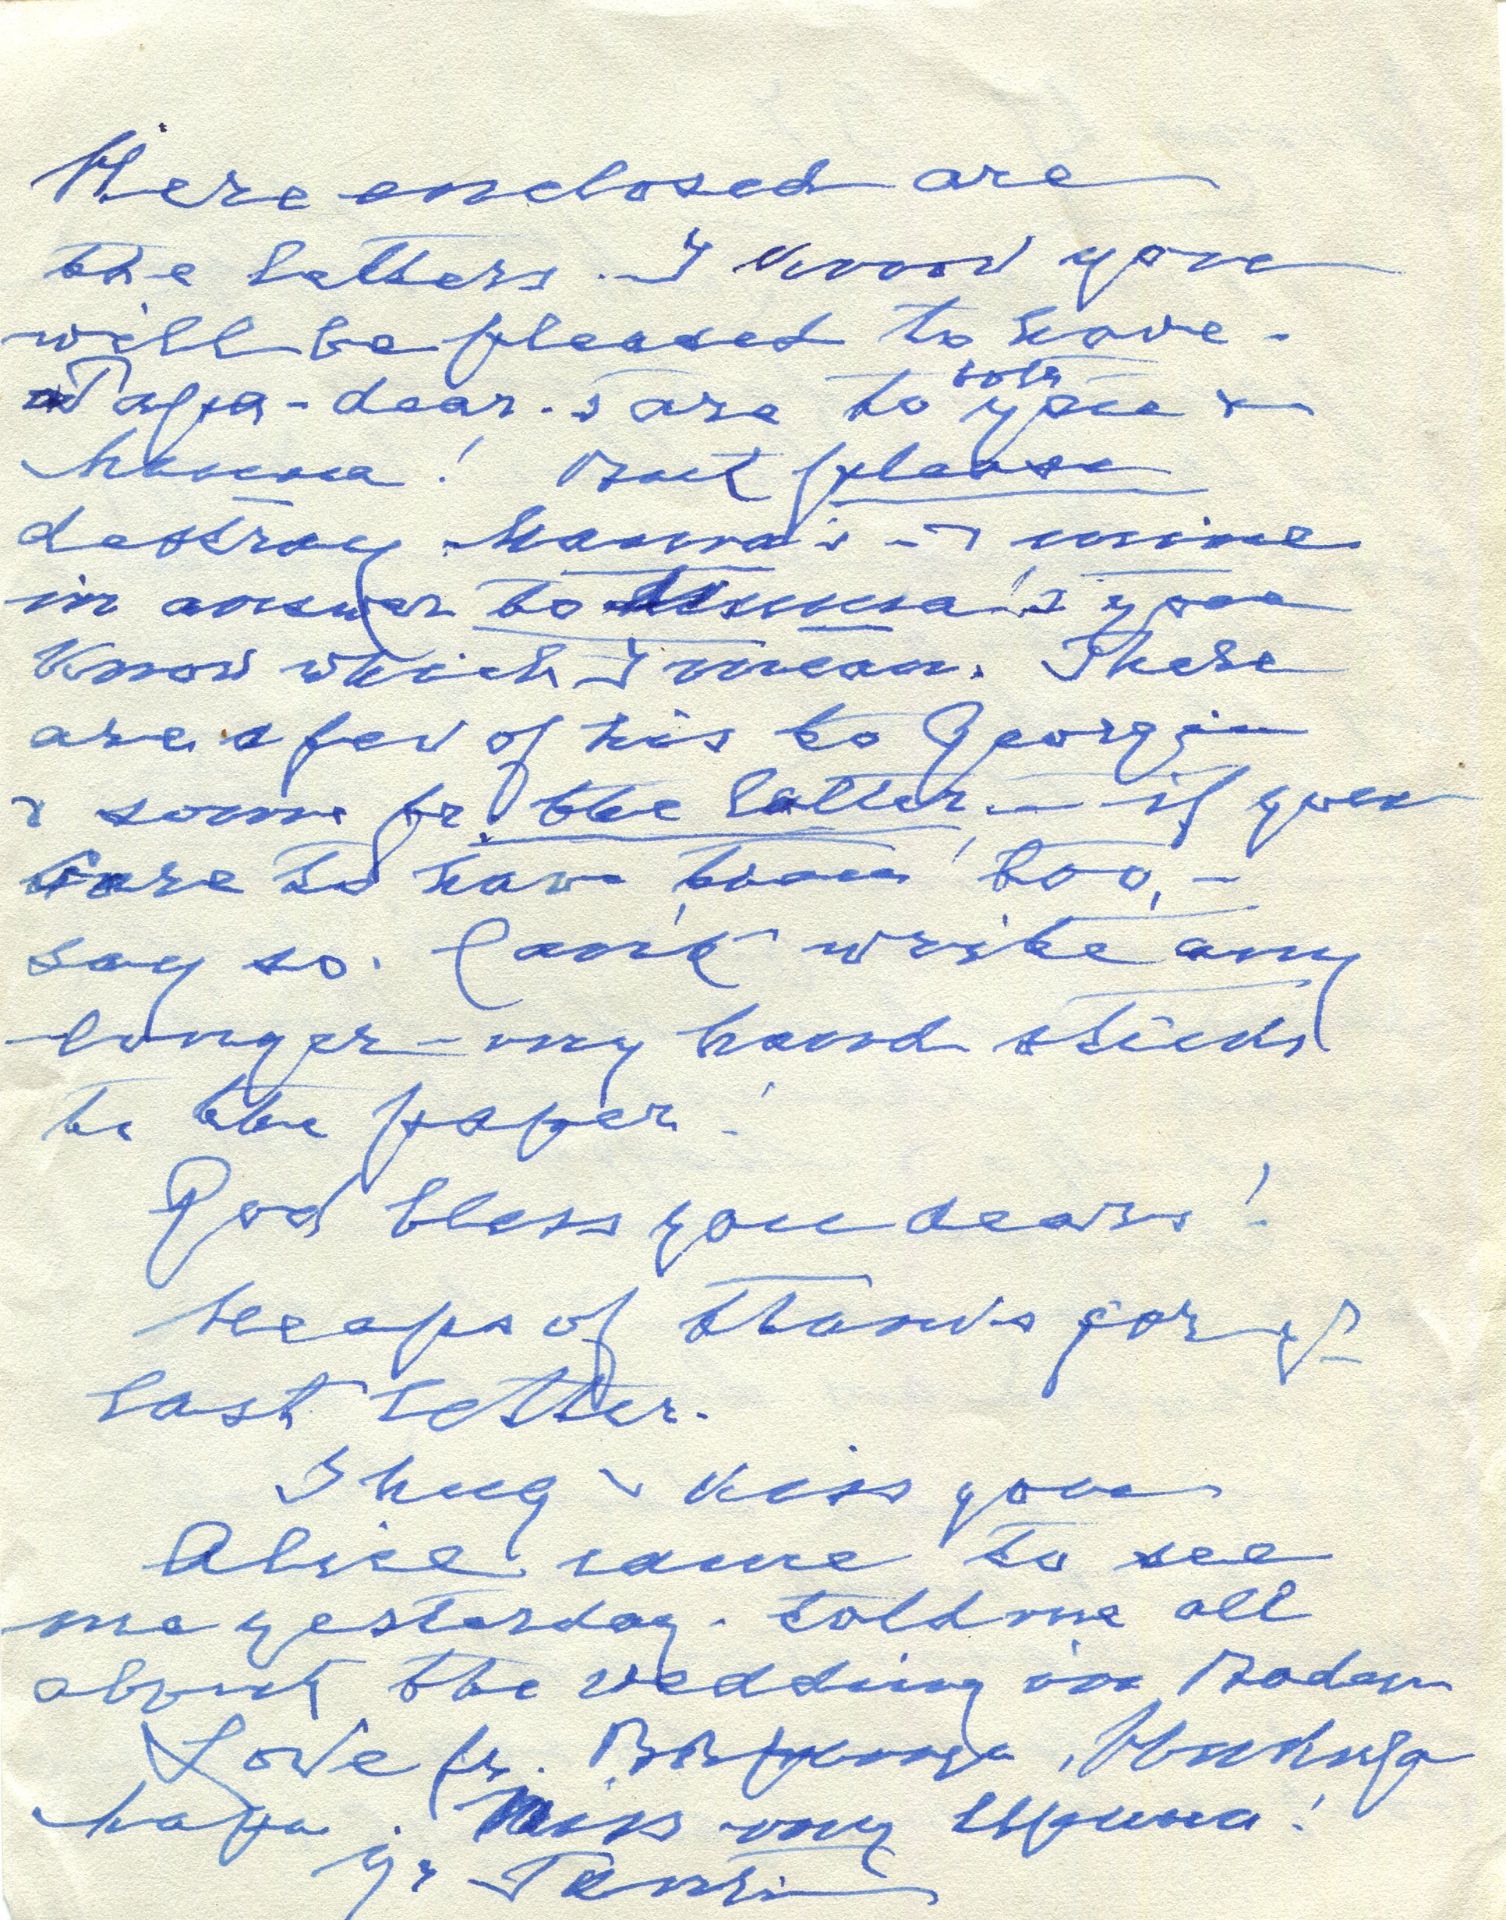 Here enclosed are
the letters. I know you
will be pleased to have.
Papa-dear. s are to both you &
! But please
destroy - & mine
in answer to you
know which I mean. There
are a few of his to Georgie
& some fr the latter. — if you
care to have them too, —
say so. Can't write any
longer — my hand sticks
to the paper!
God bless you dears!
Heaps of thanks for yr
last letter.
I hug & kiss you
Alice came to see
me yesterday. told me all
about the wedding in Baden
Love fr.
Kiss my Ирина!
yr Tanti